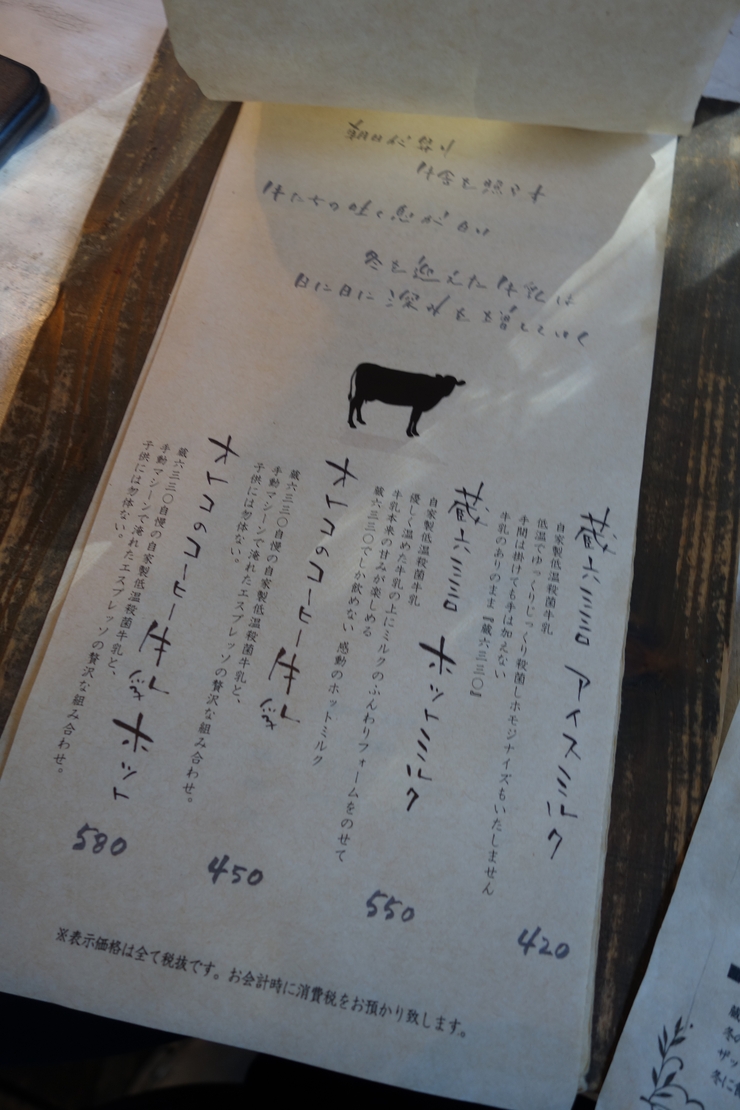 朝日が登り
牛舎を照らす
牛たちの吐く息が白い
冬を迎えた牛乳は
日に日に深みを増してゆく
蔵六三三〇 アイスミルク
自家製低温殺菌牛乳
低温でゆっくりじっくり殺菌しホモジナイズもいたしません
手間は掛けても手は加えない
牛乳のありのまま『蔵六三三〇』
420
蔵六三三〇 ホットミルク
自家製低温殺菌牛乳
優しく温めた牛乳の上にミルクのふんわりフォームをのせて
牛乳本来の甘みが楽しめる
蔵六三三〇でしか飲めない 感動のホットミルク
550
オトコのコーヒー牛乳
蔵六三三〇自慢の自家製低温殺菌牛乳と、
手動マシーンで淹れたエスプレッソの贅沢な組み合わせ。
子供には勿体ない。
450
オトコのコーヒー牛乳 ホット
蔵六三三〇自慢の自家製低温殺菌牛乳と、
手動マシーンで淹れたエスプレッソの贅沢な組み合わせ。
子供には勿体ない。
580
※表示価格は全て税抜です。お会計時に消費税をお預かり致します。